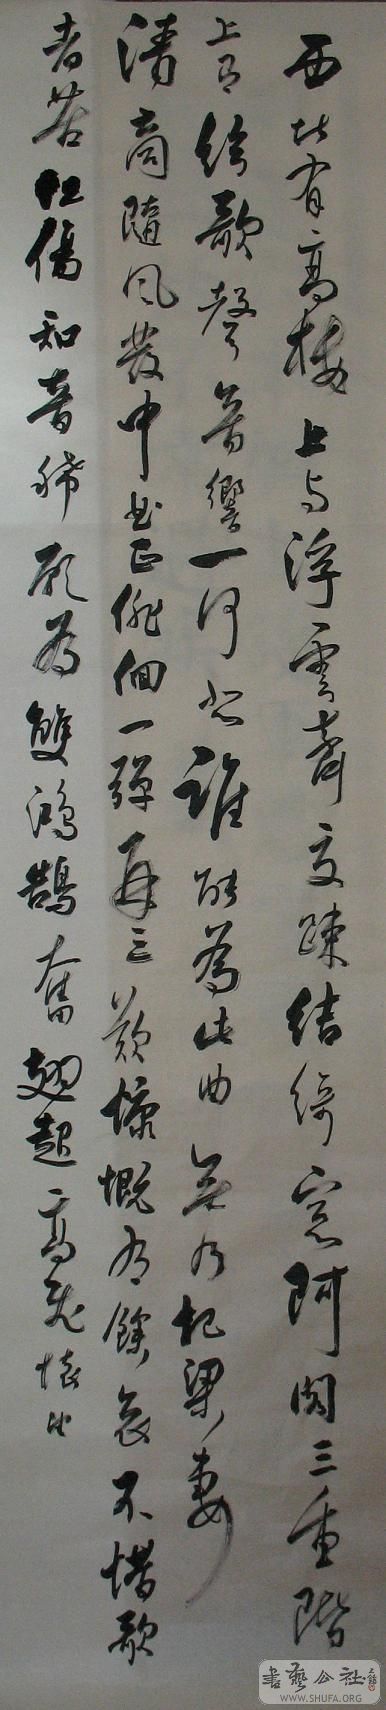 西北有高楼上与浮雲齊交疎结绮窓阿阁三重階
上有絃歌聲音響一何悲誰能為此曲無乃杞梁妻
清商隨风發中曲正徘徊一彈再三歎慷慨有餘哀不惜歌
者苦但傷知音稀願為雙鴻鵠奮翅起高飛
書藝公社
WWW.SHUFA.ORG